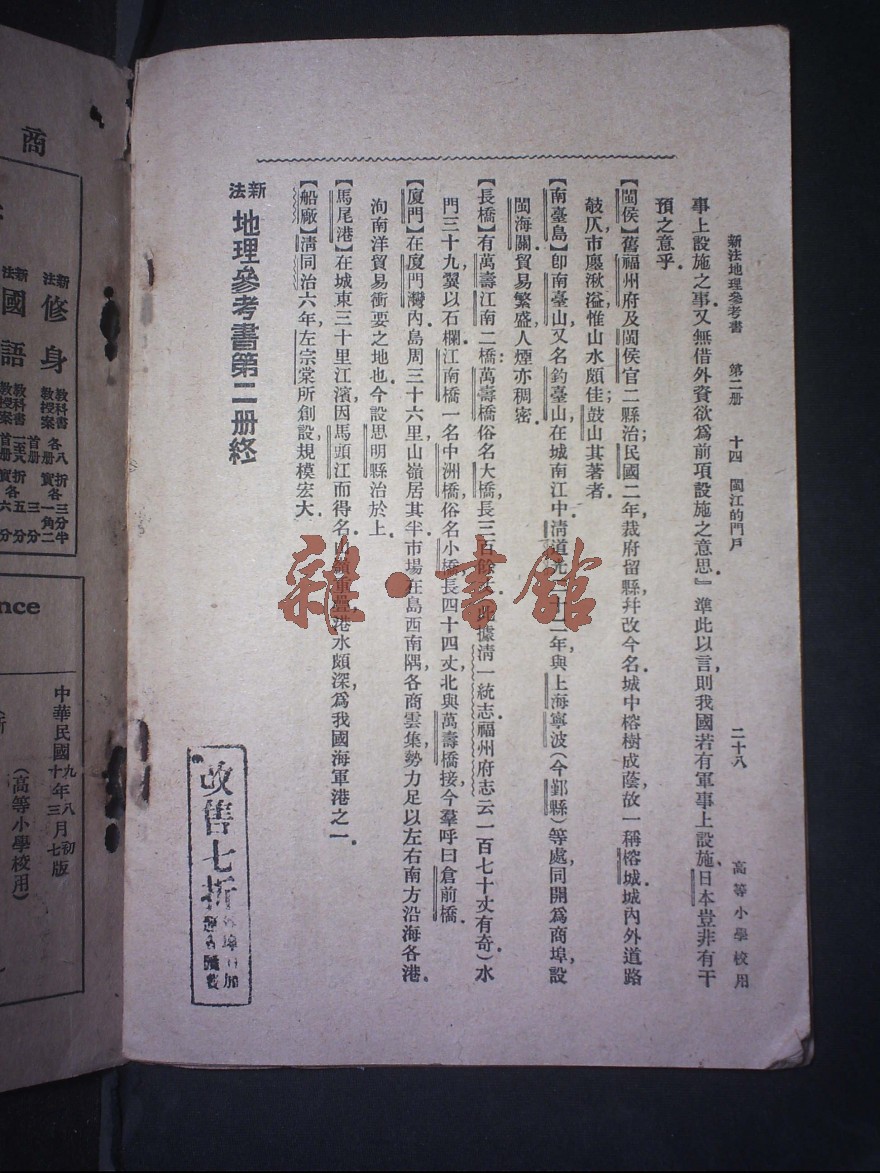 新法地理參考書 第二册 十四 閩江的門戶 二十八 高等小學校用
事上設施之事又無借外資欲爲前項設施之意思』準此以言,則我國若有軍事上設施、日本豈非有干
預之意乎.
【閩侯】舊福州府及閩侯官二縣治;民國二年,裁府留縣,幷改今名.城中榕樹成蔭,故一稱榕城.城內外道路
攲仄,市廛湫溢,惟山水頗佳;鼓山其著者.
【南臺島】卽南臺山,又名釣臺山,在城南江中,清道光二十二年,與上海寧波(今鄞縣)等處,同開爲商埠,設
閩海關,貿易繁盛,人煙亦稠密.
【長橋】有萬壽江南二橋:萬壽橋俗名大橋,長三百餘丈(此據清一統志,福州府志云一百七十丈有奇).水
門三十九,翼以石欄,江南橋一名中洲橋,俗名小橋,長四十四丈,北與萬壽橋接,今羣呼曰倉前橋.
【廈門】在廈門灣內,島周三十六里,山嶺居其半.市場在島西南隅,各商雲集,勢力足以左右南方沿海各港.
洵南洋貿易衝要之地也.今設思明縣治於上.
【馬尾港】在城東三十里江濱,因馬頭江而得名,山嶺重疊,港水頗深,爲我國海軍港之一.
【船廠】清同治六年,左宗棠所創設,規模宏大.
新法地理參考書第二册終
改售七折
雜·書館
商
新法修身
教科書
教授案
各八
首册
新法國語
教科書
教授案
首册
nce
中華民國
九年八月初版
十年三月七版
(高等小學校用)